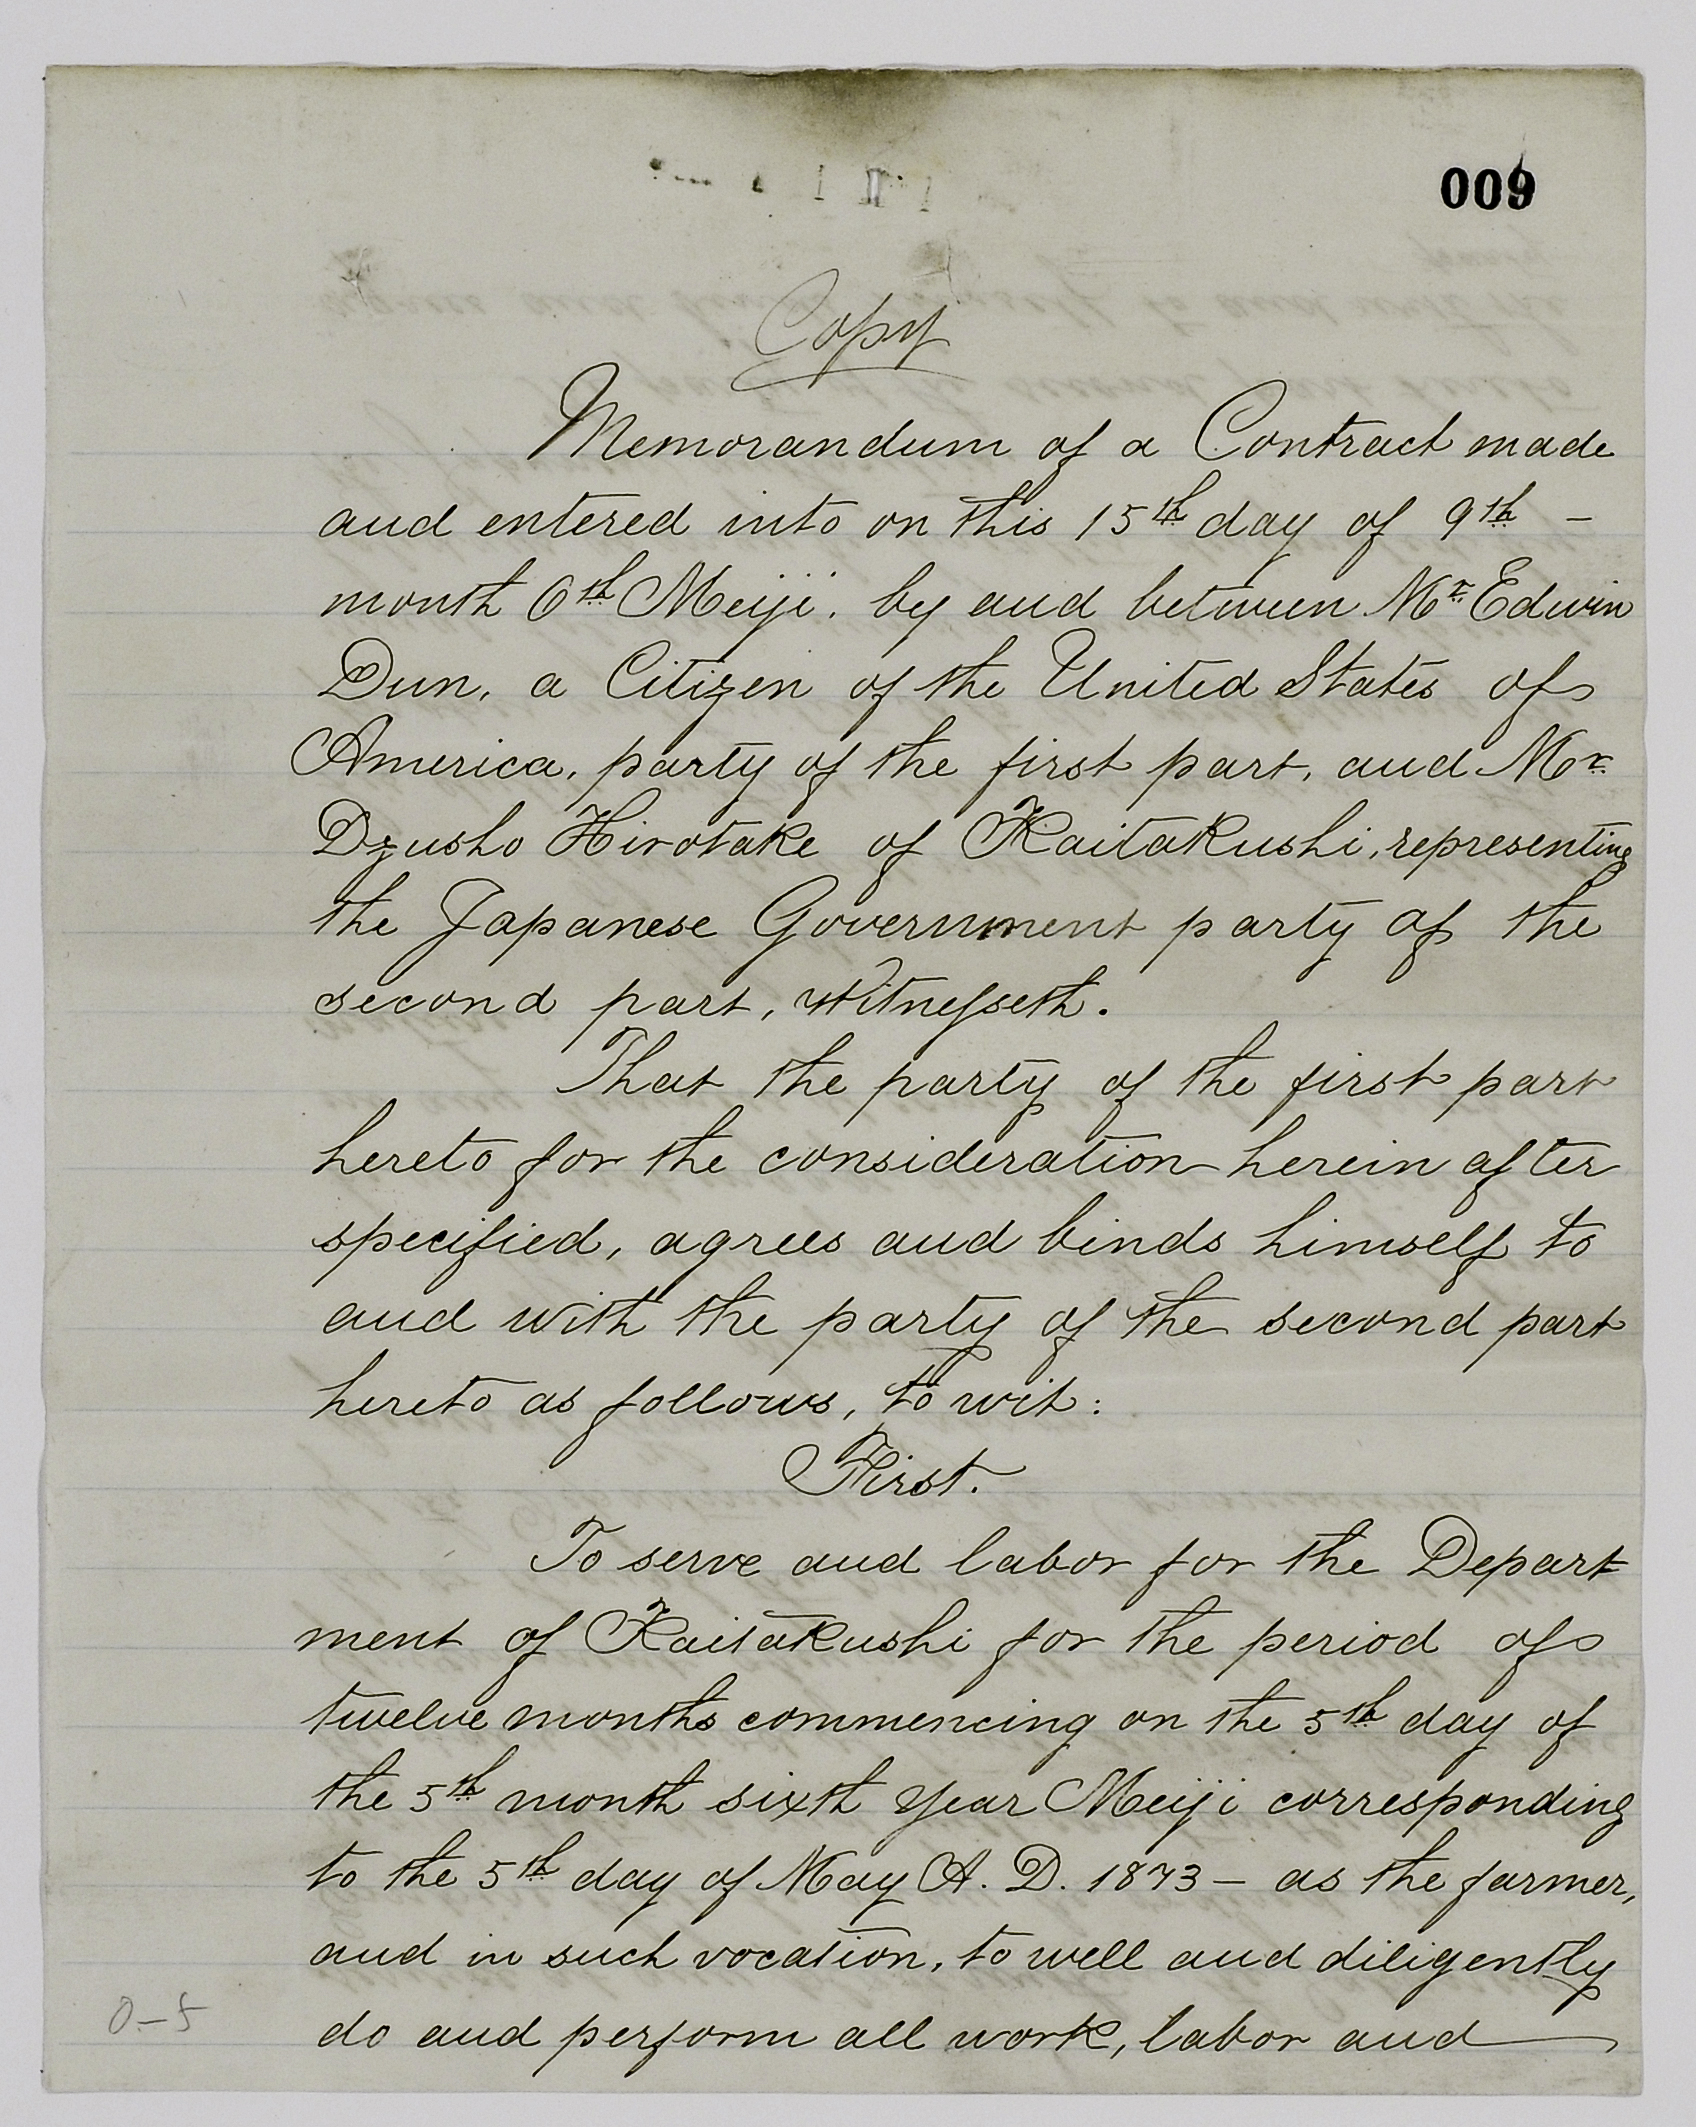 009
Copy
Memorandum of a Contract made
and entered into on this 15th day of 9th –
month 6th Meiji. by and between Mr Edwin
Dun, a Citizen of the United States of
America, party of the first part, and Mr
Dzusho Hirotake of Kaitakushi, representing
the Japanese Government party of the
second part, Witnesseth.
That the party of the first part
hereto for the consideration herein after
specified, agrees and binds himself to
and with the party of the second part
hereto as follows, to wit:
First.
To serve and labor for the Depart
ment of Kaitakushi for the period of
twelve months commencing on the 5th day of
the 5th month sixth year Meiji corresponding
to the 5th day of May A. D. 1873 – as the farmer,
and in such vocation, to well and diligently
do and perform all work, labor and
0–5